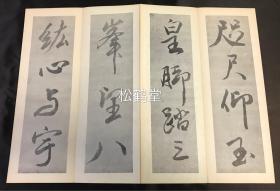 咫尺仰玉
皇脚踏三
峯望八
紘心与宇
松鹤堂